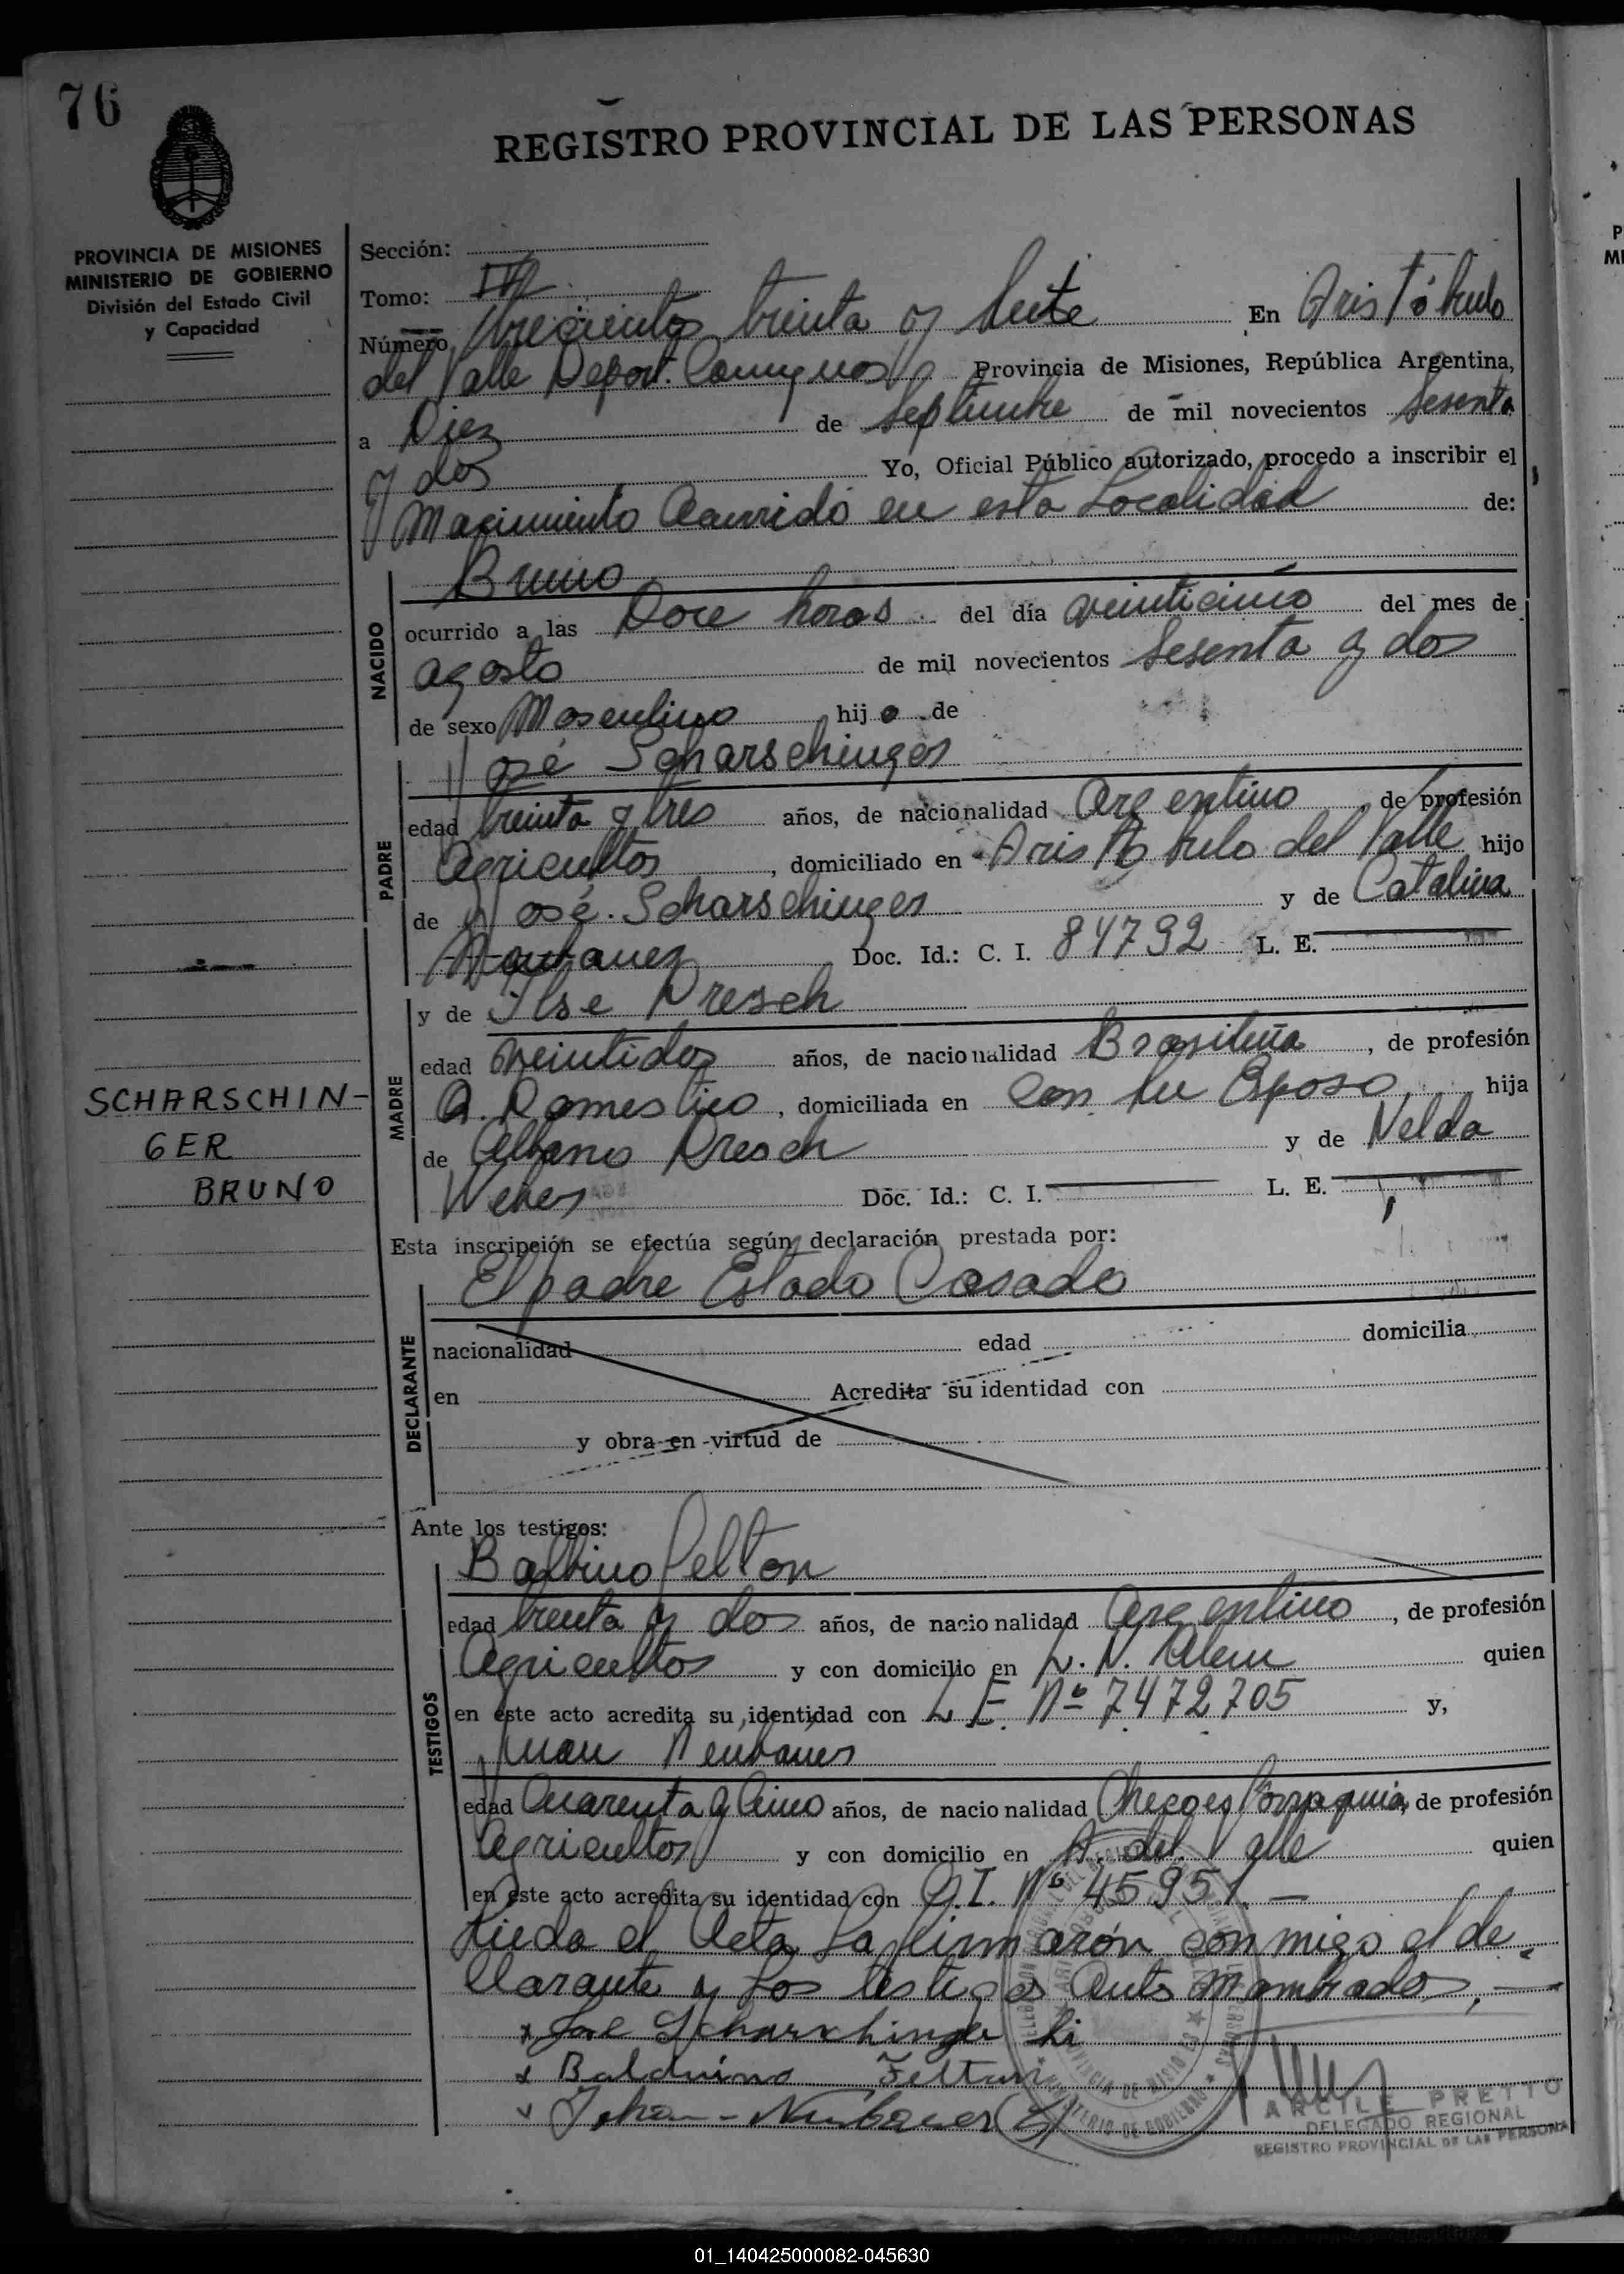 76
REGISTRO PROVINCIAL DE LAS PERSONAS
PROVINCIA DE MISIONES
MINISTERIO DE GOBIERNO
División del Estado Civil
y Capacidad
Sección:
Tomo: III
Número trecientos treinta y siete En Aristóbulo
del Valle Depart. Cainguas Provincia de Misiones, República Argentina,
a Diez de Septiembre de mil novecientos Sesenta
y dos Yo, Oficial Público autorizado, procedo a inscribir el
Nacimiento Ocurrido en esta Localidad de:
Bruno
NACIDO
ocurrido a las Doce horas del día veinticinco del mes de
agosto de mil novecientos Sesenta y dos
de sexo Masculino hijo de
José Scharschinger
PADRE
edad treinta y tres años, de nacionalidad Argentino, de profesión
Agricultor, domiciliado en Aristóbulo del Valle hijo
de José Scharschinger y de Catalina
Naubauer Doc. Id.: C. I. 84792 L. E.
y de Ilse Dresch
MADRE
edad veintidos años, de nacionalidad Brasileña, de profesión
Q. Domestico, domiciliada en Con su Esposo, hija
de Albano Dresch y de Nelda
Weber Doc. Id.: C. I. L. E.
SCHARSCHIN-
GER
BRUNO
Esta inscripción se efectúa según declaración prestada por:
El padre Estado Casado
DECLARANTE
nacionalidad edad domicilia
en Acredita su identidad con
y obra en virtud de
Ante los testigos:
Balbino Felton
TESTIGOS
edad treinta y dos años, de nacionalidad Argentino, de profesión
Agricultor y con domicilio en L. N. Alem quien
en este acto acredita su identidad con L E. Nº 7472705 y,
Juan Neubauer
edad Cuarenta y Cinco años, de nacionalidad de profesión
Agricultor y con domicilio en A. del Valle quien
en este acto acredita su identidad con C. I. Nº 45951.—
Lieda el Acta La firmarón conmigo el de-
clarante y Los testigos Antes Mombrados.—
x José Scharschinger hi
x Balduino Feltan
x Johan - Neubauer
ARCILE PRETTO
DELEGADO REGIONAL
REGISTRO PROVINCIAL DE LAS PERSONA
01_140425000082-045630